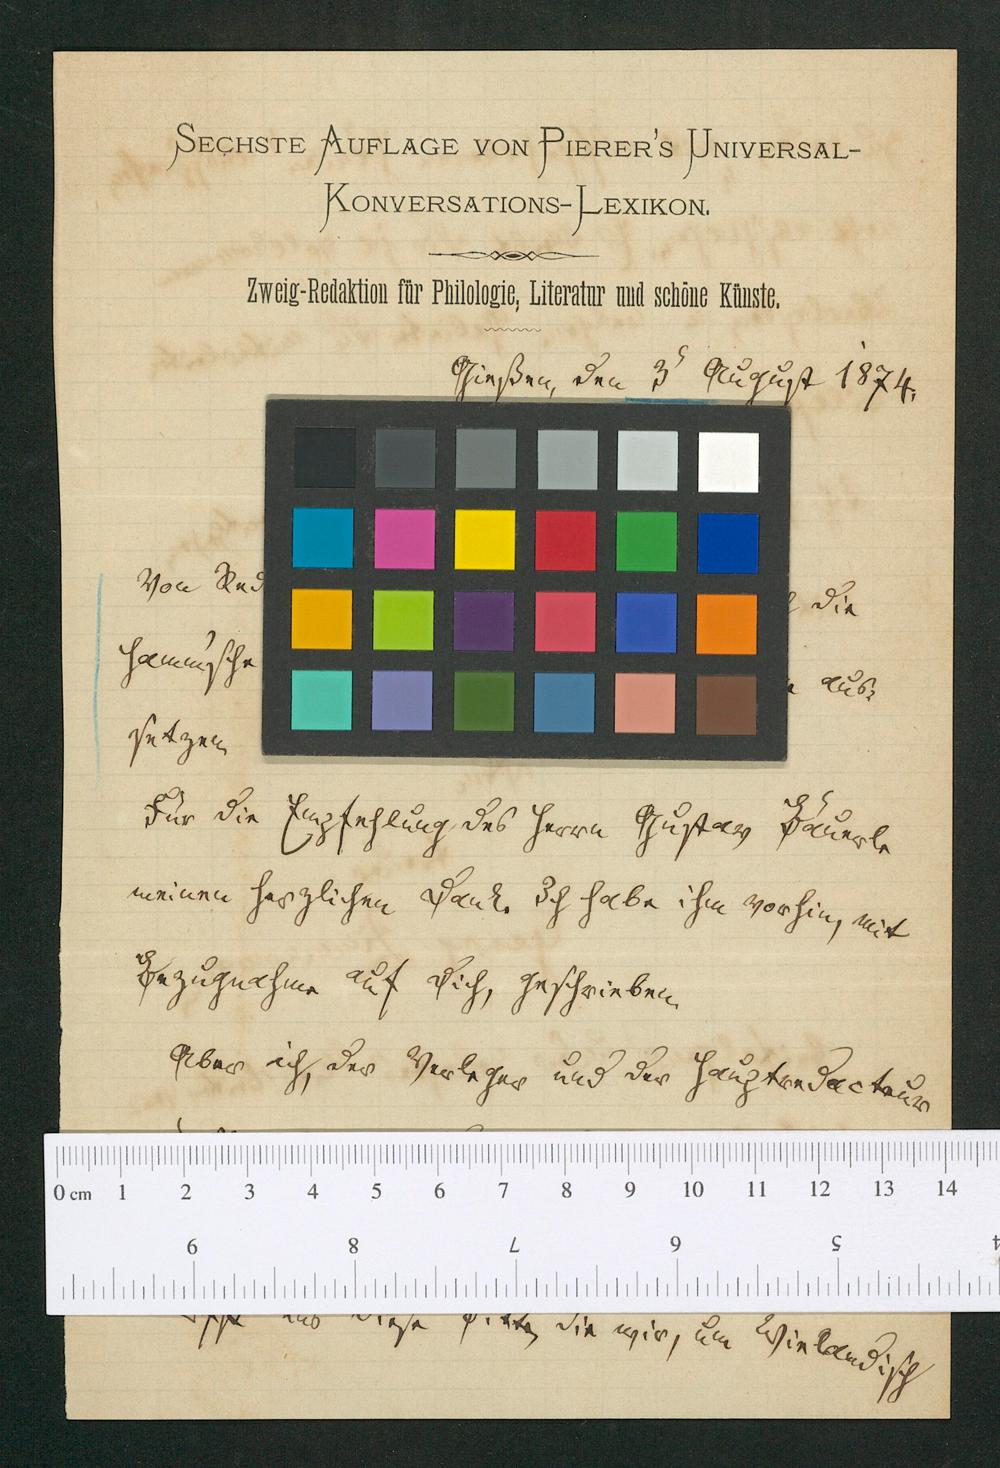 SECHSTE AUFLAGE VON PIERER'S UNIVERSAL-
KONVERSATIONS-LEXIKON.
Zweig-Redaktion für Philologie, Literatur und schöne Künste.
Gießen, den 3t August 1874.
Von Red die
hämische aus-
setzen
Für die Empfehlung des Herrn Gustav Bäuerle
meinen herzlichen Dank. Ich habe ihm vorhin, mit
Bezugnahme auf Dich, geschrieben.
Aber ich, der Verleger und der Hauptredacteur
0 cm 1 2 3 4 5 6 7 8 9 10 11 12 13 14
9 8 7 6 5 4
diese Bitte, die wir, um Wielandisch